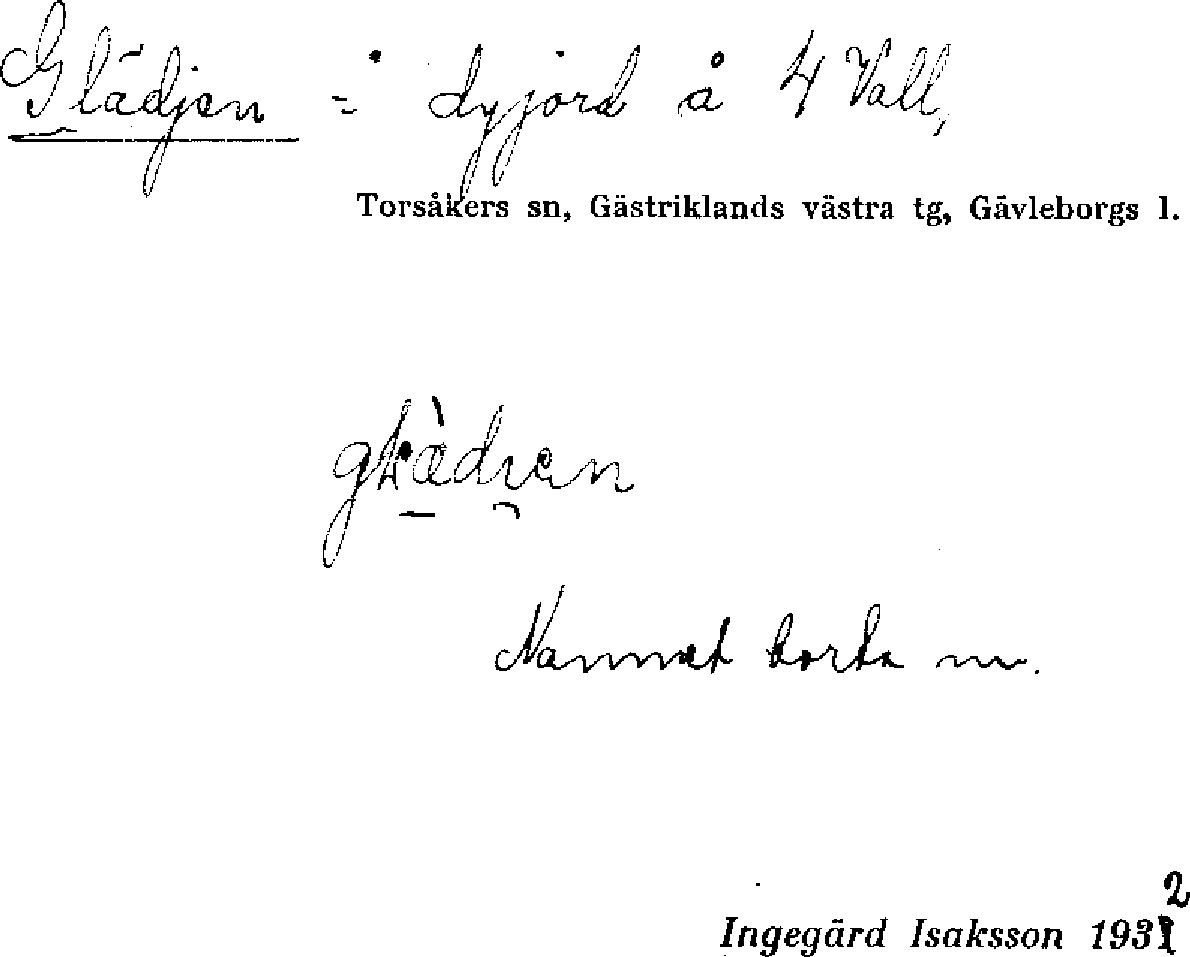 Glädjen = dyjord å 4 Vall,
Torsåkers sn, Gästriklands västra tg, Gävleborgs l.
Namnet borta nu.
Ingegärd Isaksson 1932